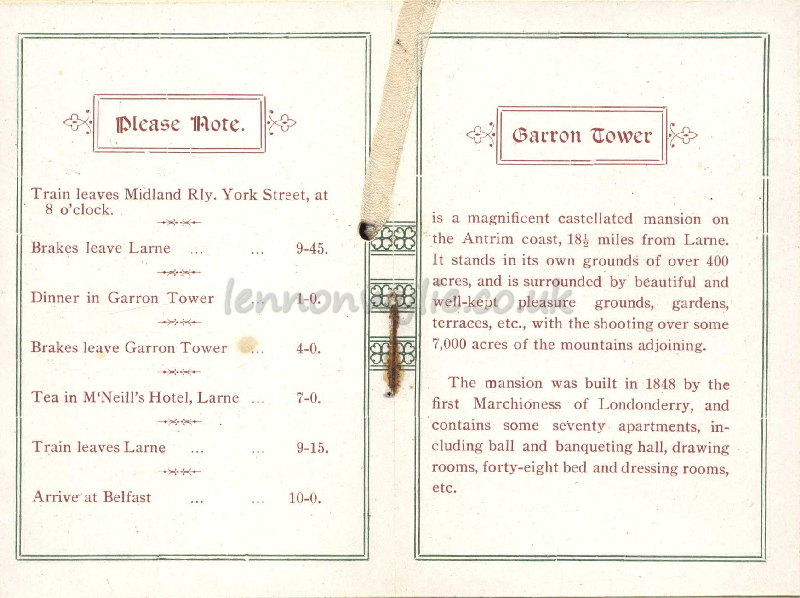 Please Note.
Train leaves Midland Rly. York Street, at
8 o'clock.
Brakes leave Larne ... ... 9-45.
Dinner in Garron Tower ... 1-0.
Brakes leave Garron Tower ... 4-0.
Tea in M'Neill's Hotel, Larne ... 7-0.
Train leaves Larne ... ... 9-15.
Arrive at Belfast ... ... 10-0.
Garron Tower
is a magnificent castellated mansion on
the Antrim coast, 18½ miles from Larne.
It stands in its own grounds of over 400
acres, and is surrounded by beautiful and
well-kept pleasure grounds, gardens,
terraces, etc., with the shooting over some
7,000 acres of the mountains adjoining.
The mansion was built in 1848 by the
first Marchioness of Londonderry, and
contains some seventy apartments, in-
cluding ball and banqueting hall, drawing
rooms, forty-eight bed and dressing rooms,
etc.